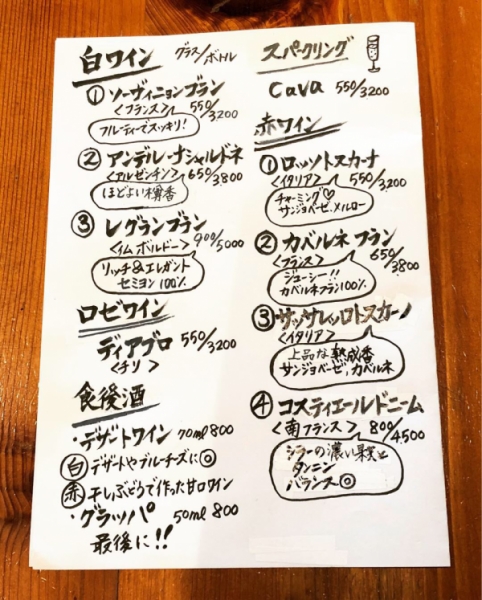 白ワイン グラス/ボトル
① ソーヴィニョンブラン
<フランス> 550/3,200
フルーティーでスッキリ!
② アンデル・ナシャルドネ
<アルゼンチン> 650/3,800
ほどよい樽香
③ レグランブラン
<仏 ボルドー> 900/5000
リッチ&エレガント
セミヨン100%
ロゼワイン
ディアブロ 550/3,200
<チリ>
食後酒
・デザートワイン 70ml 800
白 デザートやブルーチーズに◎
赤 干しぶどうで作った甘口ワイン
・グラッパ 50ml 800
最後に!!
スパークリング
Cava 550/3,200
赤ワイン
① ロッソトスカーナ
<イタリア> 550/3,200
チャーミング♡
サンジョベーゼ、メルロー
② カベルネフラン
<フランス> 650/3800
ジューシー!!
カベルネフラン100%
③ サッサレッロトスカーノ
<イタリア>
上品な熟成香
サンジョベーゼ、カベルネ
④ コスティエールドニーム
<南フランス> 800/4500
シラーの濃い果実と
タンニン
バランス◎